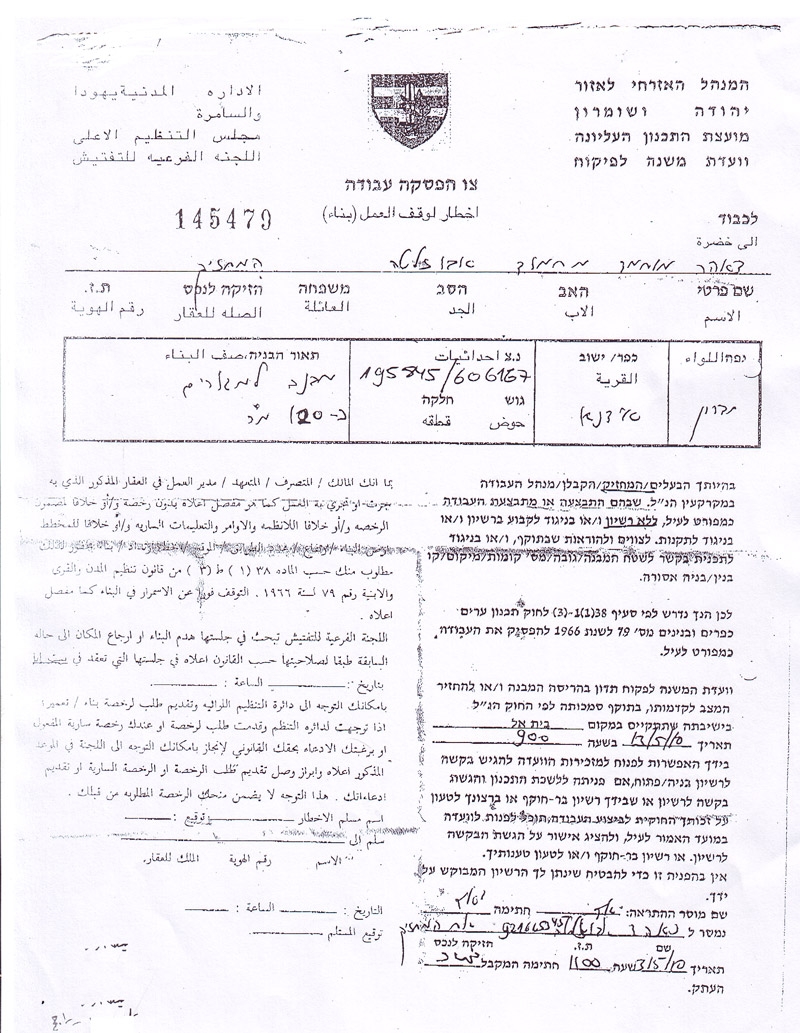 המנהל האזרחי לאזור
יהודה ושומרון
מועצת התכנון העליונה
וועדת משנה לפיקוח
الاداره المدنية يهودا
والسامرة
مجلس التنظيم الاعلى
اللجنه الفرعيه للتفتيش
צו הפסקה עבודה
اخطار لوقف العمل (بناء)
145479
לכבוד
الى حضرة
מחמוד
המחזיק
שם פרטי האב הסב משפחה הזיקה לנכס ת.ז.
الاسم الاب الجد العائلة الصله للعقار رقم الهوية
נפה اللواء
חברון
כפר/ ישוב
القرية
נ.צ احداثيات
195845/606167
גוש חלקה
حوض قطعه
תאור הבניה, صف البناء
מבנה למגורים
כ-120 מ"ר
בהיותך הבעלים/המחזיק/הקבלן/מנהל העבודה
במקרקעין הנ"ל. שבהם התבצעה או מתבצעת העבודה
כמפורט לעיל, ללא רשיון ו/או בניגוד לקבוע ברשיון ו/או
בניגוד לתקנות. לצווים ולהוראות שבתוקף, ו/או בניגוד
לתפנית בקשר לשטח המבנה/גובה/מס' קומות/מיקום/קו
בנין/בניה אסורה.
לכן הנך נדרש לפי סעיף 38(1)-(3) לחוק תכנון ערים
כפרים ובנינים מס' 79 לשנת 1966 להפסיק את העבודה
כמפורט לעיל.
וועדת המשנה לפקוח תדון בהריסת המבנה ו/או להחזיר
המצב לקדמותו, בתוקף סמכותה לפי החוק הנ"ל
בישיבתה שתתקיים במקום בית אל
תאריך 13/5/10 בשעה 900
בידך האפשרות לפנות למזכירות הוועדה להגיש בקשה
לרשיון בניה/פתוח, אם פניתה ללשכת התוכנון והגשת
בקשה לרשיון או שבידך רשיון בר-תוקף או ברצונך לטעון
על זכותך החוקית לביצוע העבודה, תוכל לפנות לועדה
במועד האמור לעיל, ולהציג אישור על הגשת הבקשה
לרשיון. או רשיון בר-תוקף ו/או לטעון טענותיך.
אין בהפניה זו כדי להבטיח שינתן לך הרשיון המבוקש על
ידך.
שם מוסר ההתראה: חתימה
נמסר ל
שם ת.ז. הזיקה לנכס
תאריך 3/5/10 שעה 1100 חתימה המקבל
העתק.
بما انك المالك / المتصرف / المتعهد / مدير العمل في العقار المذكور الذي به
جرت او تجري به العمل كما هو مفصل اعلاه بدون رخصة و/أو خلافا لمضمون
الرخصه و/أو خلافا للانظمه والاوامر والتعليمات الساريه و/أو خلافا للمخطط
مطلوب منك حسب الماده ٣٨ (١) ط (٣) من قانون تنظيم المدن والقرى
والابنية رقم ٧٩ لسنة ١٩٦٦ . التوقف فورا عن الاسمرار في البناء كما مفصل
اعلاه .
اللجنة الفرعية للتفتيش تبحث في جلستها هدم البناء او ارجاع المكان الى حاله
السابقة طبقا لصلاحيتها حسب القانون اعلاه في جلستها التي تعقد في
بتاريخ: الساعة :
بامكانك التوجه الى دائرة التنظيم اللوائيه وتقديم طلب لرخصة بناء / تعمير؛
اذا توجهت لدائره التنظم وقدمت طلب لرخصة او عندك رخصة سارية المفعول
او برغبتك الادعاء بحقك القانوني لإنجاز بامكانك التوجه الى اللجنة في الموعد
المذكور اعلاه وابراز وصل تقديم طلب الرخصة او الرخصة السارية او تقديم
ادعاءاتك . هذا التوجه لا يضمن منحك الرخصة المطلوبه من قبلك .
اسم مسلم الاخطار توقيع :
سلم الى
الاسم رقم الهوية المالك للعقار.
التاريخ : الساعة :
توقيع المستلم